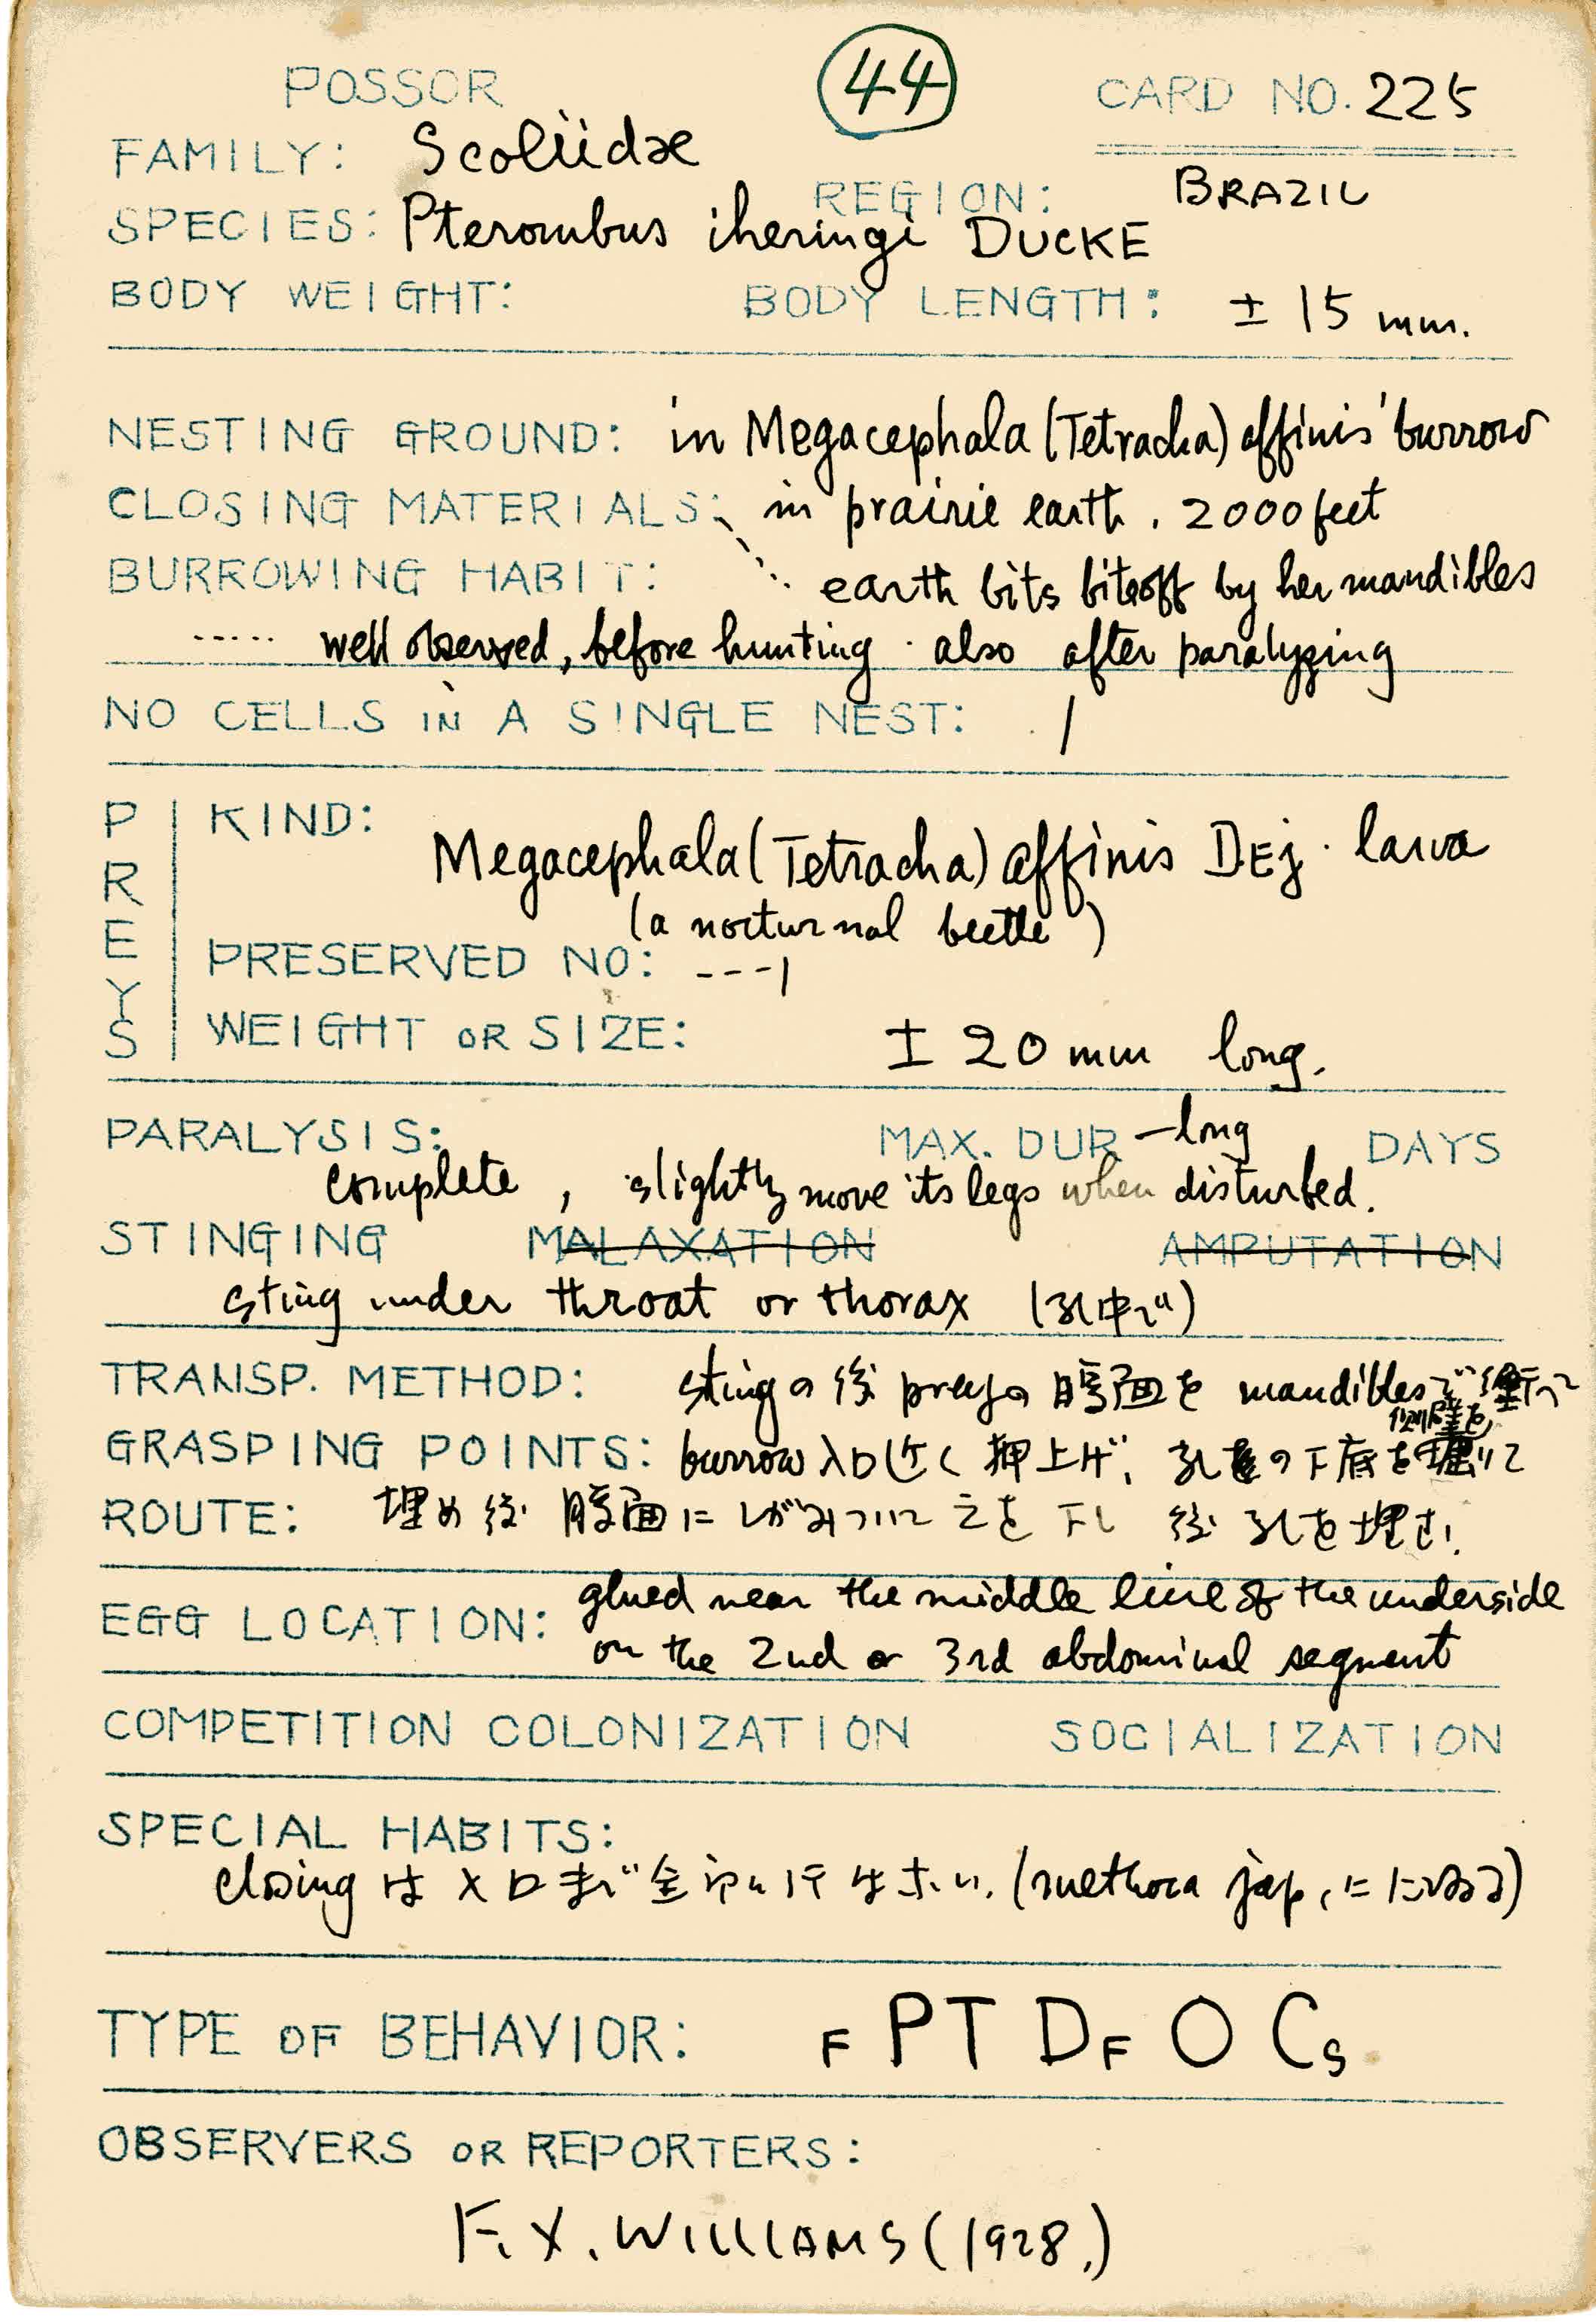 POSSOR
44
CARD NO. 225
FAMILY: Scoliidæ
REGION: BRAZIL
SPECIES: Pterombus iheringi DUCKE
BODY WEIGHT: BODY LENGTH: ± 15 mm.
NESTING GROUND: in Megacephala (Tetracha) affinis' burrow
CLOSING MATERIALS: in prairie earth. 2000 feet
BURROWING HABIT: earth bits biteoff by her mandibles
..... well observed, before hunting. also after paralyzing
NO CELLS IN A SINGLE NEST: 1
PREYS
KIND: Megacephala (Tetracha) affinis DEJ. larva
(a nocturnal beetle)
PRESERVED NO: ---1
WEIGHT OR SIZE: ± 20 mm long.
PARALYSIS: MAX. DUR —long DAYS
complete, slightly move its legs when disturbed.
STINGING MALAXATION AMPUTATION
sting under throat or thorax (孔中で)
TRANSP. METHOD: stingの後 preyの腹面を mandiblesで
側壁を
GRASPING POINTS: burrow入口近く押上げ、孔の下底を
ROUTE: 埋め後 腹面にしがみついて之を下し 後孔を埋む.
EGG LOCATION: glued near the middle line of the underside
on the 2nd or 3rd abdominal segment
COMPETITION COLONIZATION SOCIALIZATION
SPECIAL HABITS:
closing は入口まで全部は行はない. (methoca jap. に似る)
TYPE OF BEHAVIOR: F PT DF O Cs
OBSERVERS OR REPORTERS:
F. X. WILLIAMS (1928.)